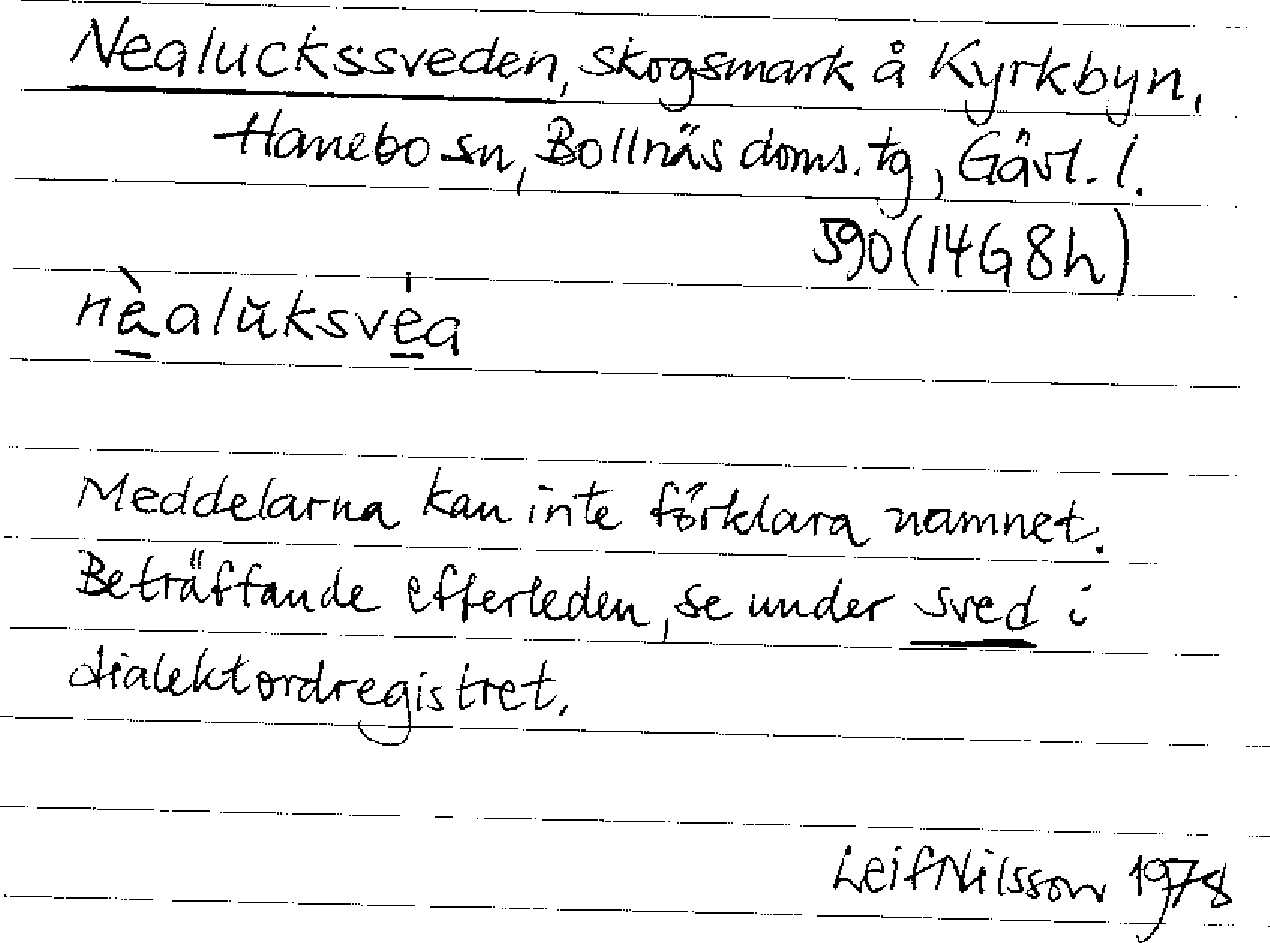 Nealuckssveden, skogsmark å Kyrkbyn,
Hanebo sn, Bollnäs doms. tg, Gävl. l.
590 (14G8h)
nè̱alŭksvė̱a
Meddelarna kan inte förklara namnet.
Beträffande efterleden, se under sved i
dialektordregistret.
Leif Nilsson 1978